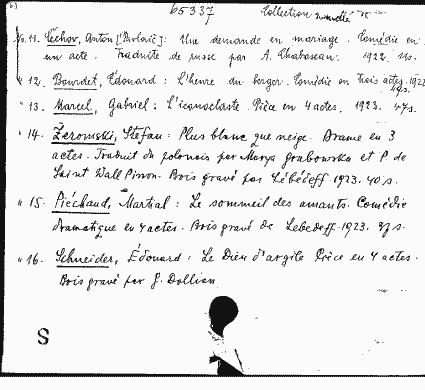 65337 Collection nouvelle
No. 11. Čechov, Anton [Pavlovič]: Une demande en mariage. Comédie en
un acte. Traduite de russe par A. Chaboseau. 1922. 11s.
" 12. Bourdet, Édouard: L'heure du berger. Comédie en trois actes. 1922
49s.
" 13. Marcel, Gabriel: L'iconoclaste. Pièce en 4 actes. 1923. 47s.
" 14. Żeromski, Stefan: Plus blanc que neige. Drame en 3
actes. Traduit du polonais par Marya Grabowska et P. de
Saint Wall Pirron. Bois gravé par Lébédeff. 1923. 40s.
" 15. Piéchaud, Martial: Le sommeil des amants. Comédie
dramatique en 4 actes. Bois gravé de Lebedeff. 1923. 97s.
" 16. Schneider, Édouard: Le Dieu d'argile Pièce en 4 actes.
Bois gravé par J. Dollian
S